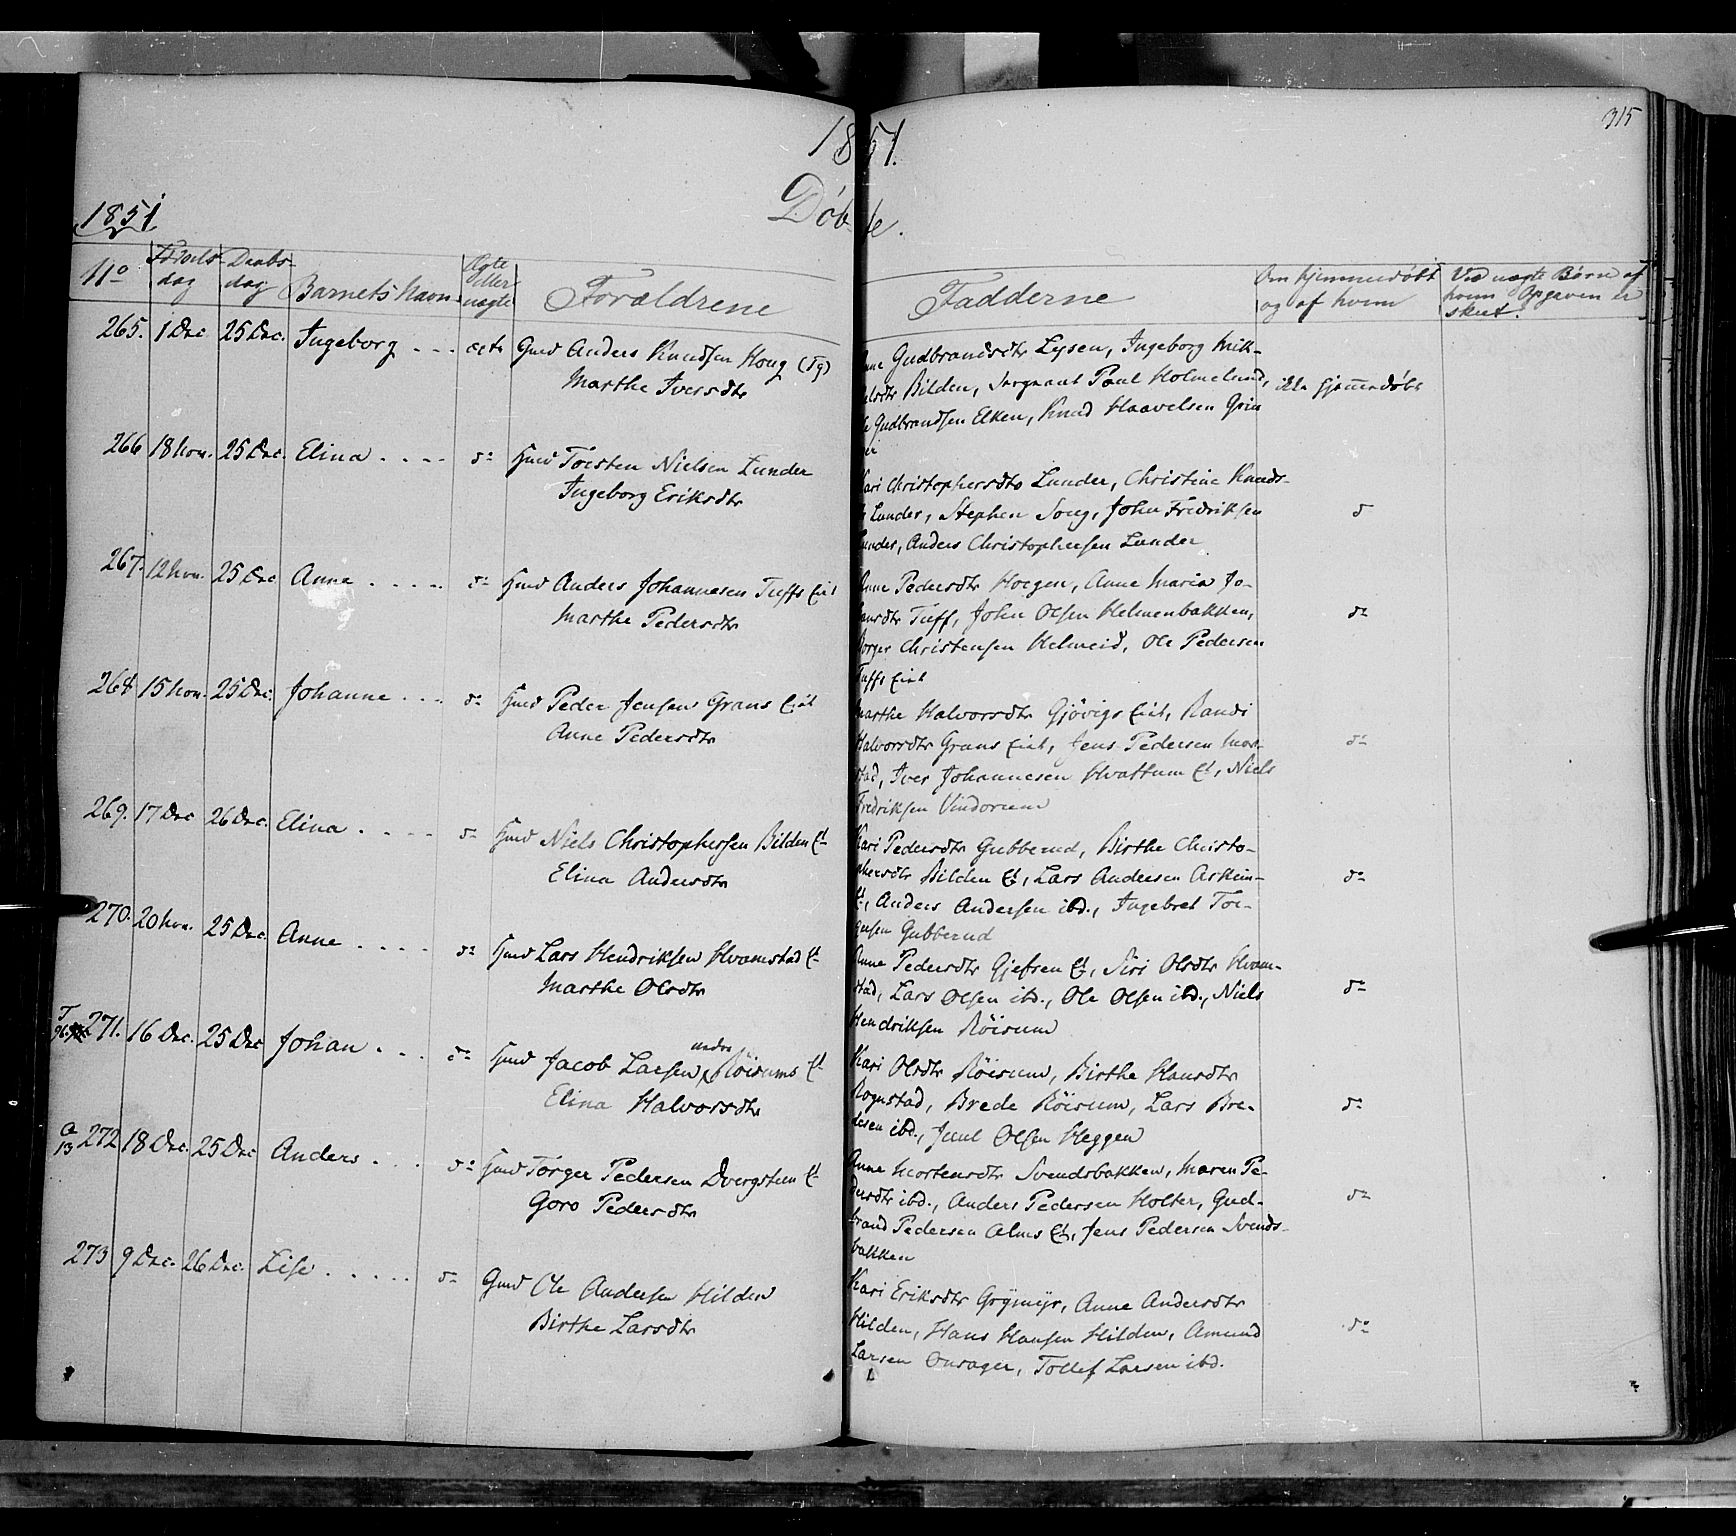 315
1851.
1851
Døbte.
No
Fødsels-
dag
Daabs-
dag
Barnets Navn
Ægte
eller
uægte
Forældrene
Fadderne
Om hjemmedøbt
og af hvem
Ved uægte Børn af
hvem Opgaven er
skeet.
265. 1 Dec 25 Dec. Ingeborg . . . ægte Gmd Anders Knudsen Houg (Tg)
Marthe Iversdtr
Gudbrandsdtr Lysen, Ingeborg Mik-
elsdtr Bilden, Sergeant Paul Holmelund,
Gudbrandsen Elken, Knud Haavelsen Grin
er
ikke hjemmedøbt
266 18 Nov. 25 Dec. Elina . . . . do Hmd Torsten Nielsen Lunder
Ingeborg Eriksdtr
Kari Christophersdtr Lunder, Christine Knuds-
Lunder, Stephen Song, John Fredriksen
Lunder, Anders Christophersen Lunder
do
267. 12 Nov. 25 Dec Anne . . . . . do Hmd Anders Johannesen Tuffs Eiet
Marthe Pedersdtr
Anne Pedersdtr Horgen, Anne Maria Jo-
hansdtr Tuff, John Olsen Helmenbakken,
Borger Christensen Helmeid, Ole Pedersen
Tuffs Eiet
do
268 15 Nov. 25 Dec. Johanne . . . do Hmd Peder Jensen Grans Eiet
Anne Pedersdtr
Marthe Halvorsdtr Gjøvigs Eiet, Randi
Halvorsdtr Grans Eiet, Jens Pedersen Mor-
stad, Iver Johannesen Hvattum Et, Niels
Fredriksen Vindorum
do
269. 17 Dec 26 Dec. Elina . . . . do Hmd Niels Christophersen Bilden Et
Elina Andersdtr
Kari Pedersdtr Gubberud, Birthe Christo-
phersdtr Bilden Et, Lars Andersen Askim-
Et, Anders Andersen ibd., Ingebret Tor-
gersen Gubberud
do
270. 20 Nov. 25 Dec. Anne . . . . do Hmd Lars Hendriksen Hvamstad Et
Marthe Olsdtr
Anne Pedersdtr Gjefsen Et, Siri Olsdtr Hvam-
stad, Lars Olsen ibd., Ole Olsen ibd., Niels
Hendriksen Røisum
do
T
96.
271. 16 Dec. 25 Dec Johan . . . do Hmd Jacob Larsen nedre Røisums Et
Elina Halvorsdtr
Kari Olsdtr Røisum, Birthe Hansdtr
Rognstad, Brede Røisum, Lars Bre-
desen ibd., Juul Olsen Heggen
do
a
13
272 18 Dec. 25 Dec Anders . . . do Hmd Torger Pedersen Dvergsteen Et
Goro Pedersdtr
Anne Mortensdtr Svendsbakken, Maren Pe-
dersdtr ibd., Anders Pedersen Holter, Gud-
brand Pedersen Alms Et, Jens Pedersen Svends-
bakken
do
273 9 Dec. 26 Dec. Lise . . . . . do Gmd Ole Andersen Hilden
Birthe Larsdtr
Kari Eriksdtr Grymyr, Anne Andersdtr
Hilden, Hans Hansen Hilden, Amund
Larsen Onsager, Tollef Larsen ibd.
do